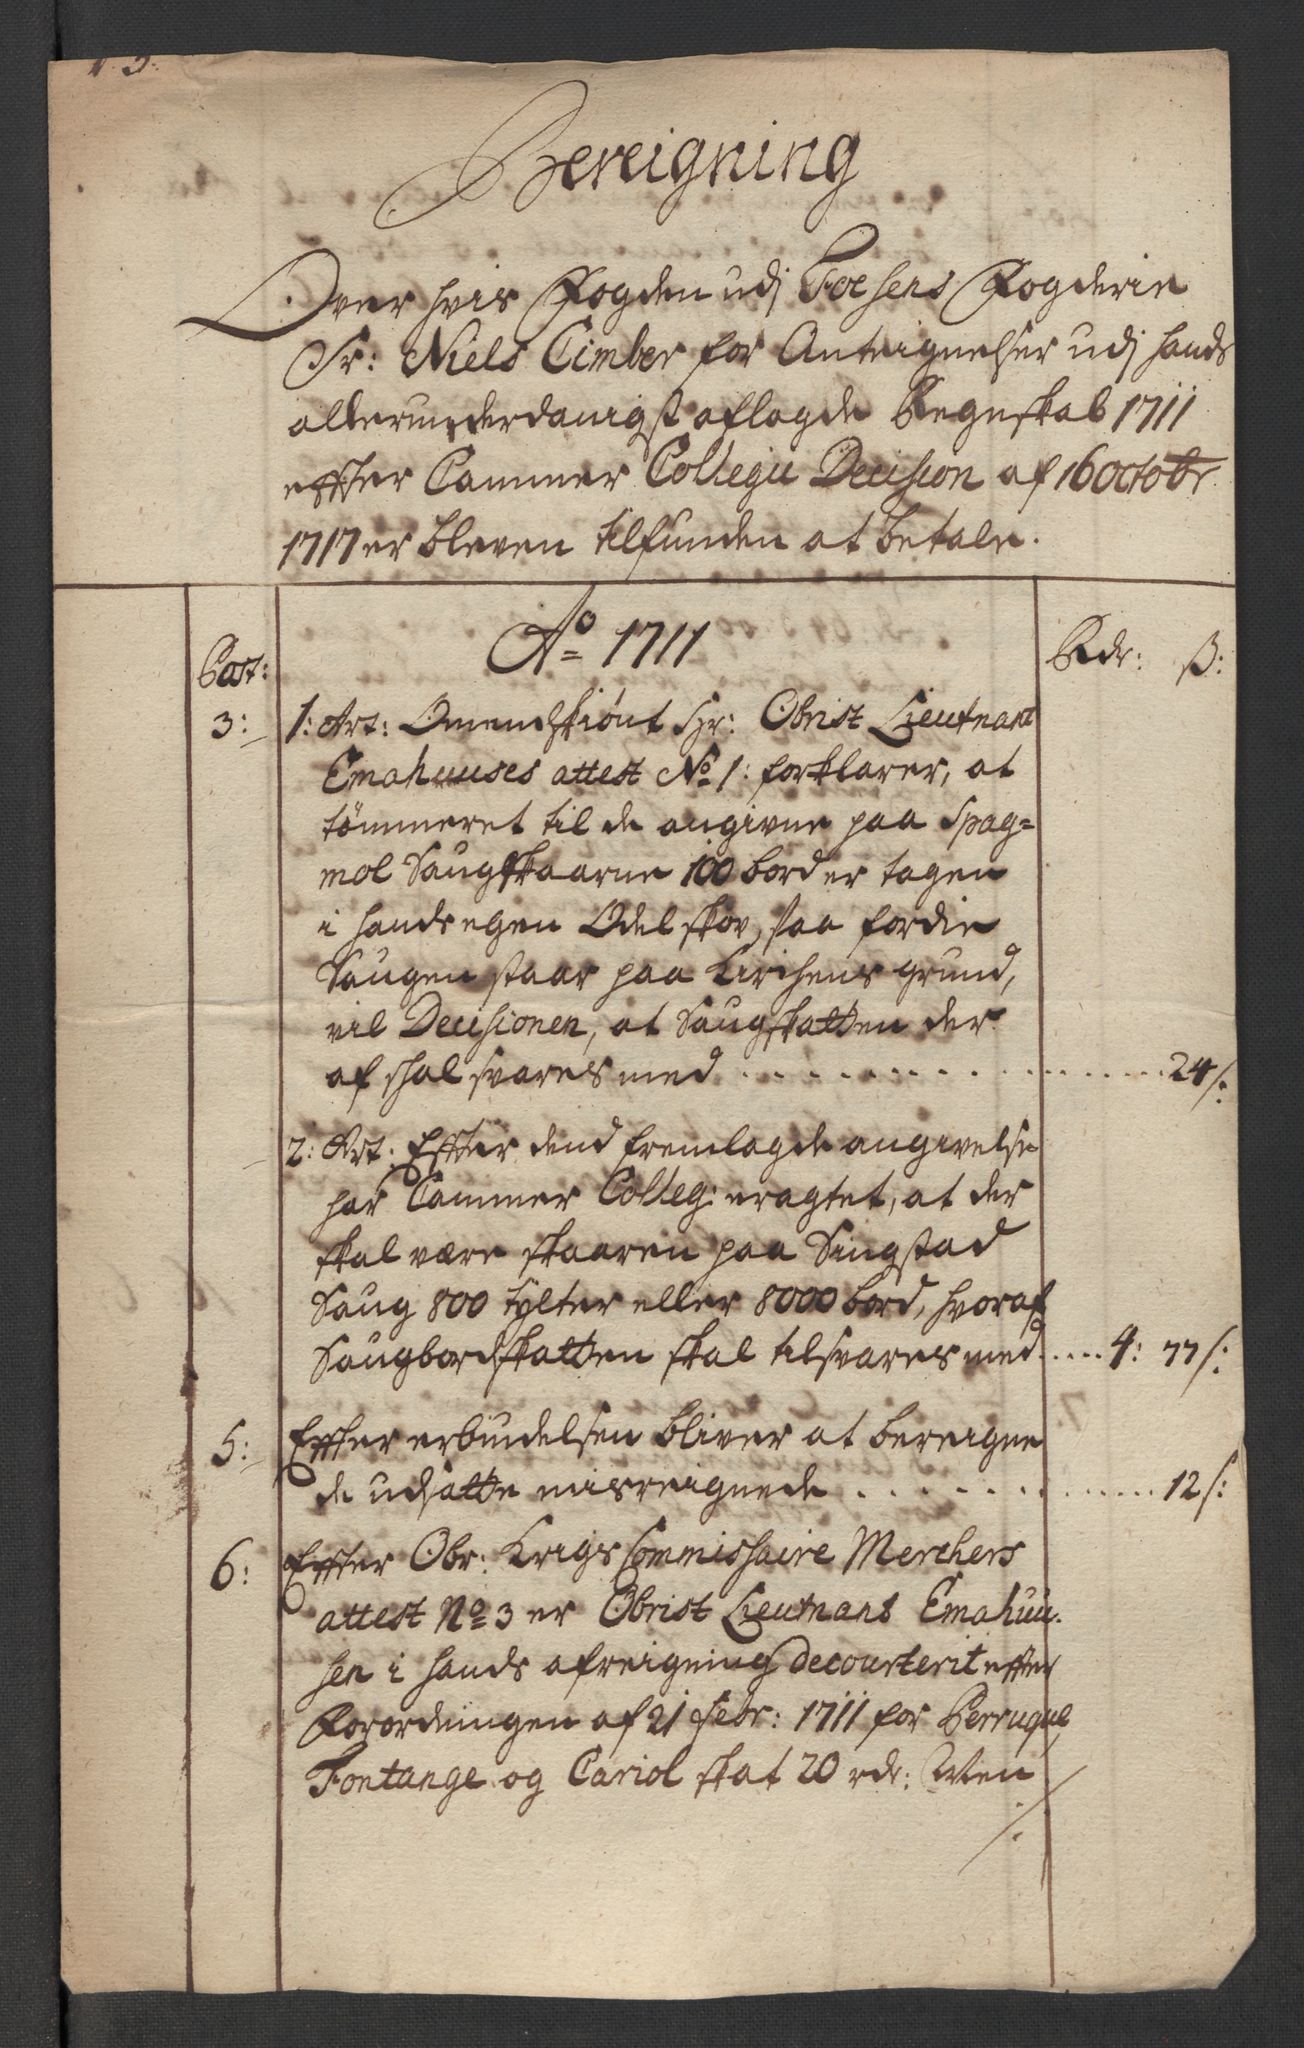 Bereigning
Over hvis Fogden udj Foesens Fogderie
Sr: Niels Cimber for Anteignelser udj hands
allerunderdanigst aflagde Regnskab 1711
effter Cammer Collegii Decision af 16 Octobr
1717 er bleven tilfunden at betale.
Ao 1711
Post: Rdr: ß:
3: 1: Art: Omendskiønt Hr: Obrist Lieutnant
Emahuuses attest No 1: forklarer, at
tømmeret til de angivne paa Spag=
mol Saugskaarne 100 bord er tagen
i hands egen Odel skov, saa fordie
Saugen staar paa Kirchens grund,
vil Decisionen, at Saugskatten der
af skal svares med . . . . . . . . . . . . 24ß:
2: Art: Effter dend fremlagde angivelse
har Cammer Colleg: eragtet, at der
skal være skaaren paa Singstad
Saug 800 tylter eller 8000 bord, hvoraf
Saugbordskatten skal tilsvares med ..... 4: 77ß:
5: Effter erbiudelsen bliver at bereigne
de udsatte misreignede . . . . . . . . . . 12ß:
6: Effter Obr: Krigs Commissaire Merchers
attest No 3 er Obrist Lieutnant Emahuu-
sen i hands afreigning decourterit effter
Forordningen af 21 Febr: 1711 for Perruque
Fontange og Cariol skat 20 rdr: Men